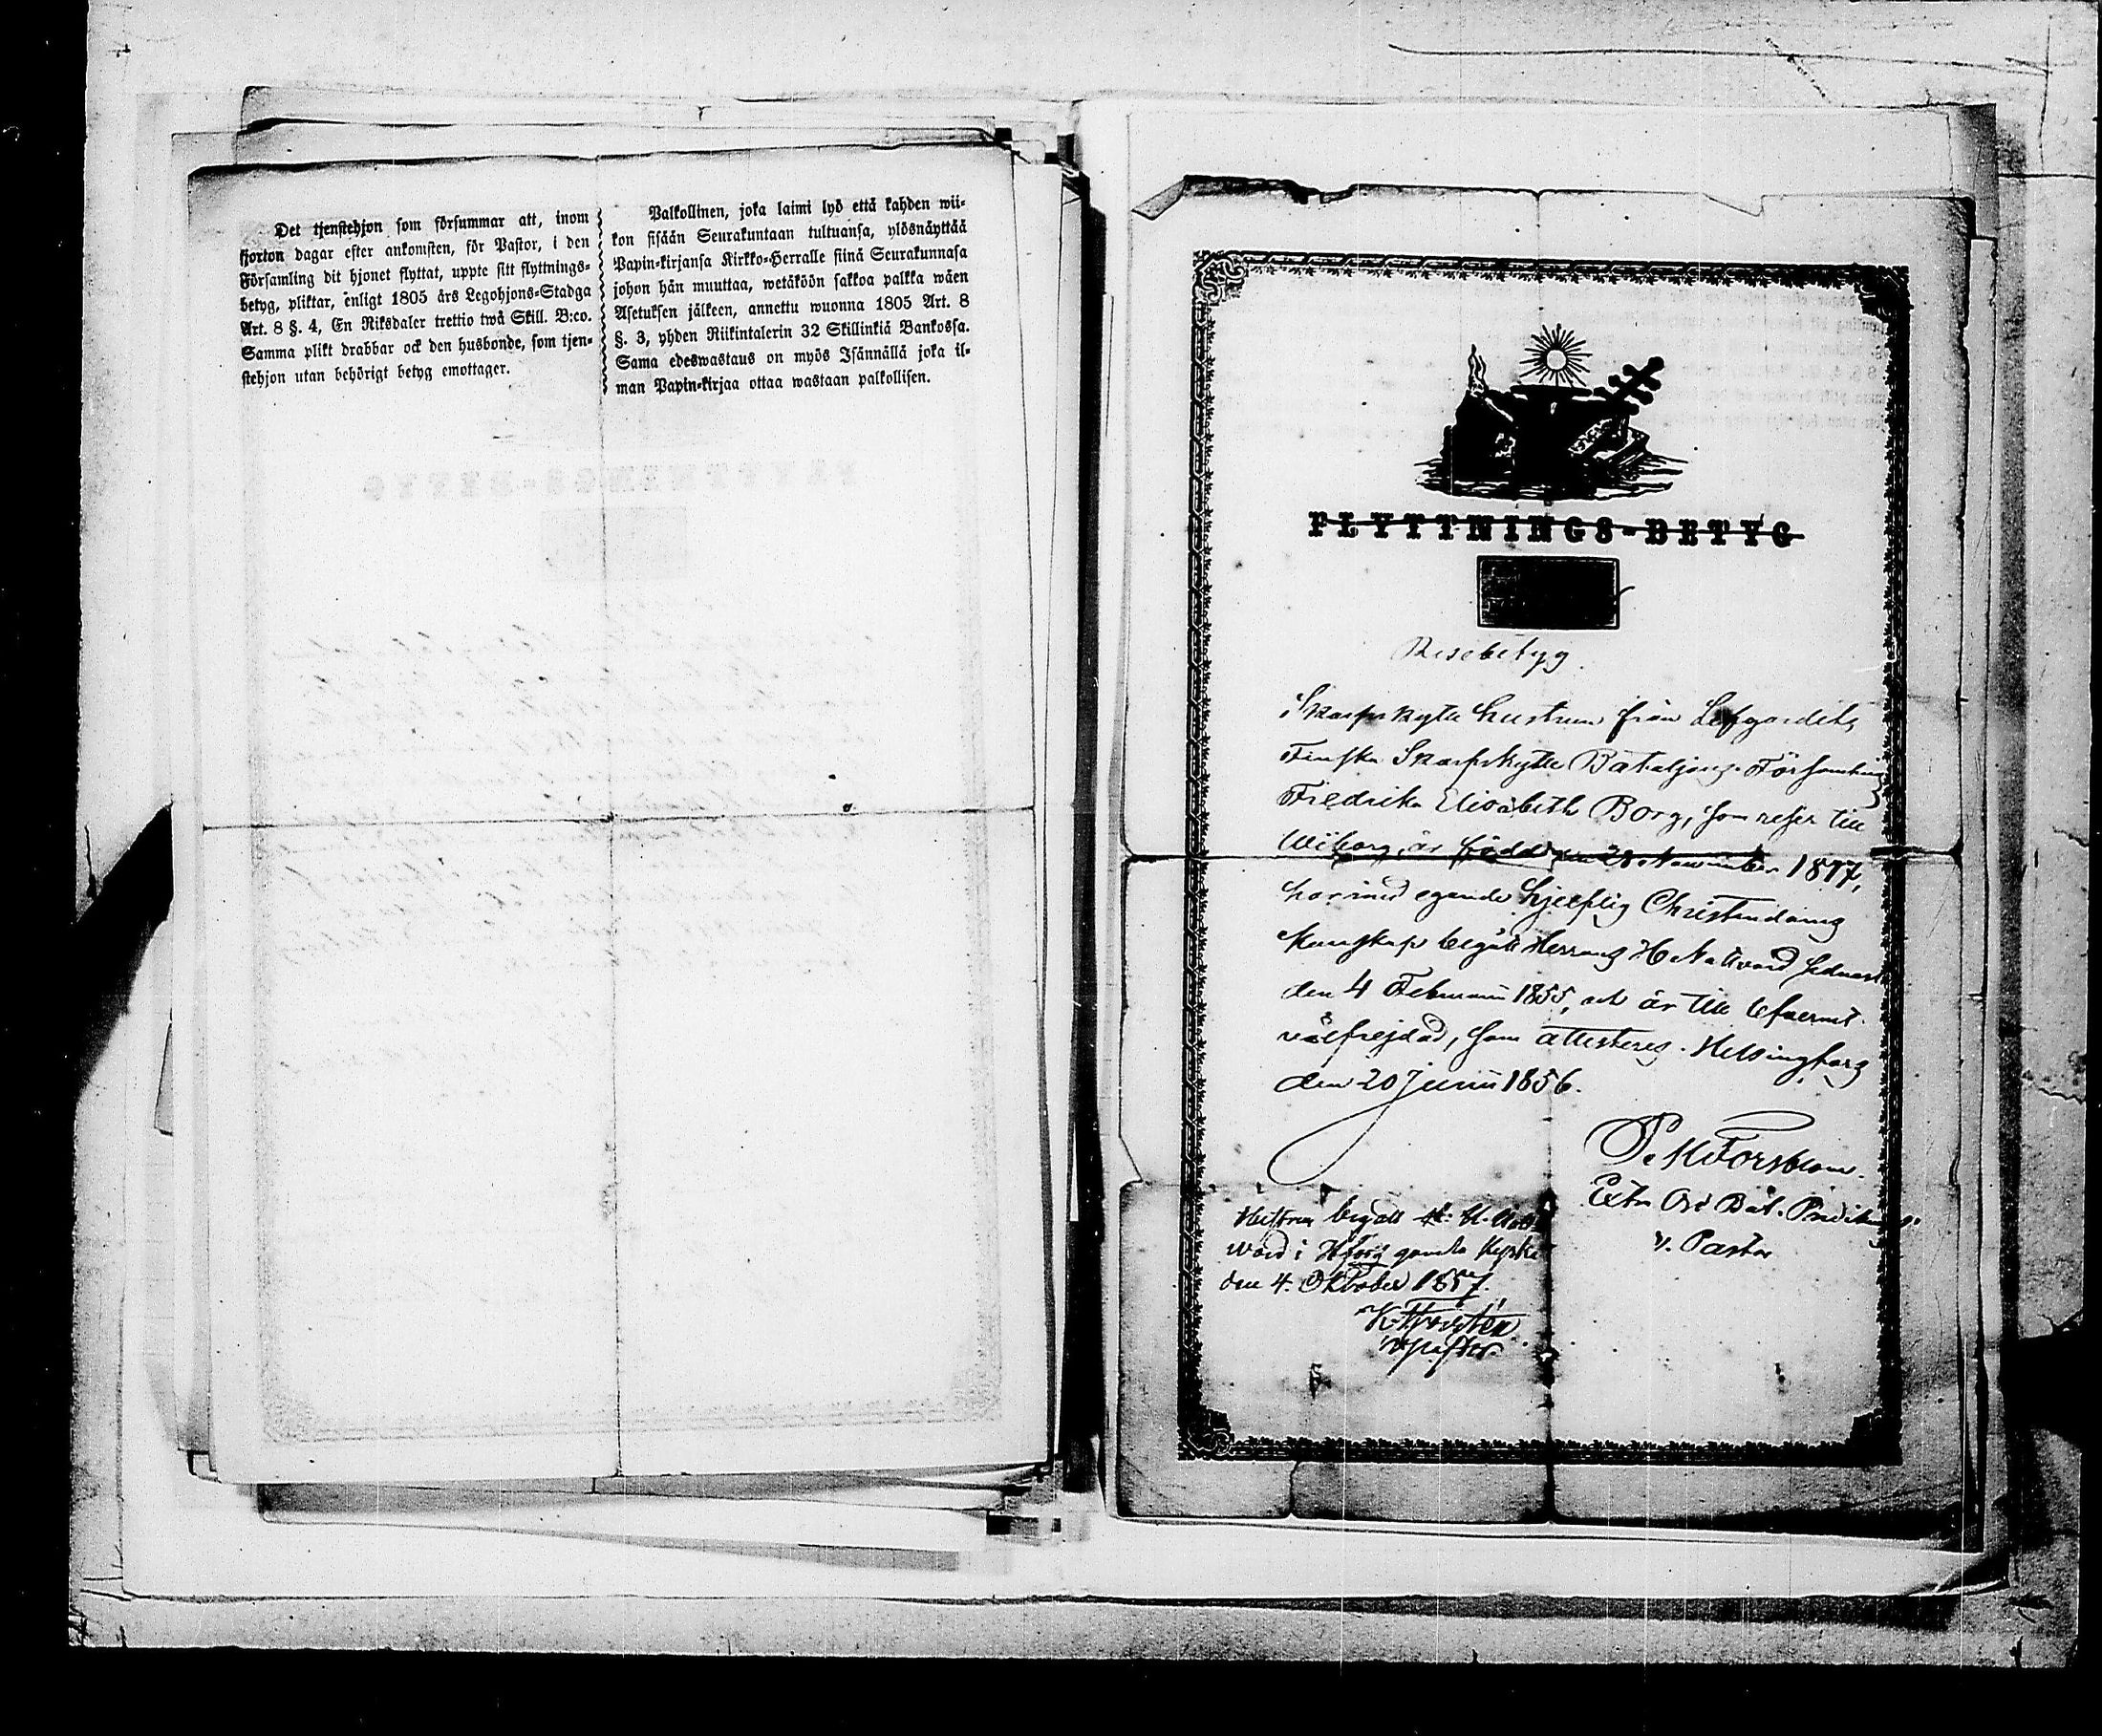 Det tjenstehjon som försummar att, inom
fjorton dagar efter ankomsten, för Pastor, i den
Församling dit hjonet flyttat, uppte sitt flyttnings-
betyg, pliktar, enligt 1805 års Legohjons-Stadga
Art. 8 §. 4, En Riksdaler trettio twå Skill. B:co.
Samma plikt drabbar ock den husbonde, som tjen-
stehjon utan behörigt betyg emottager.
Palkollinen, joka laimi lyö että kahden wii-
kon sisään Seurakuntaan tultuansa, ylösnäyttää
Papin-kirjansa Kirkko-Herralle siinä Seurakunnasa
johon hän muuttaa, wetäköön sakkoa palkka wäen
Asetuksen jälkeen, annettu wuonna 1805 Art. 8
§. 3, yhden Riikintalerin 32 Skillinkiä Bankossa.
Sama edeswastaus on myös Isännällä joka il-
man Papin-kirjaa ottaa wastaan palkollisen.
FLYTTNINGS-BETYG
Resebetyg.
Skarpskytte hustrun från Lifgardets
Finska Skarpskytte Bataljons Församling
Fredrika Elisabeth Borg, som reser till
Wiborg, är född den 28 November 1817,
har med egande hjelplig Christendoms
kunskap begått Herrans H. Nattvard sednast
den 4 Februarii 1855, och är till lefvernet
välfrejdad, som attesteras. Helsingfors
den 20 Junii 1856.
Extra Ord Bat. Predikant
v. Pastor
Hustrun begått H. Natt-
ward i H:fors gamla kyrka
den 4. Oktober 1857.
v pastor.